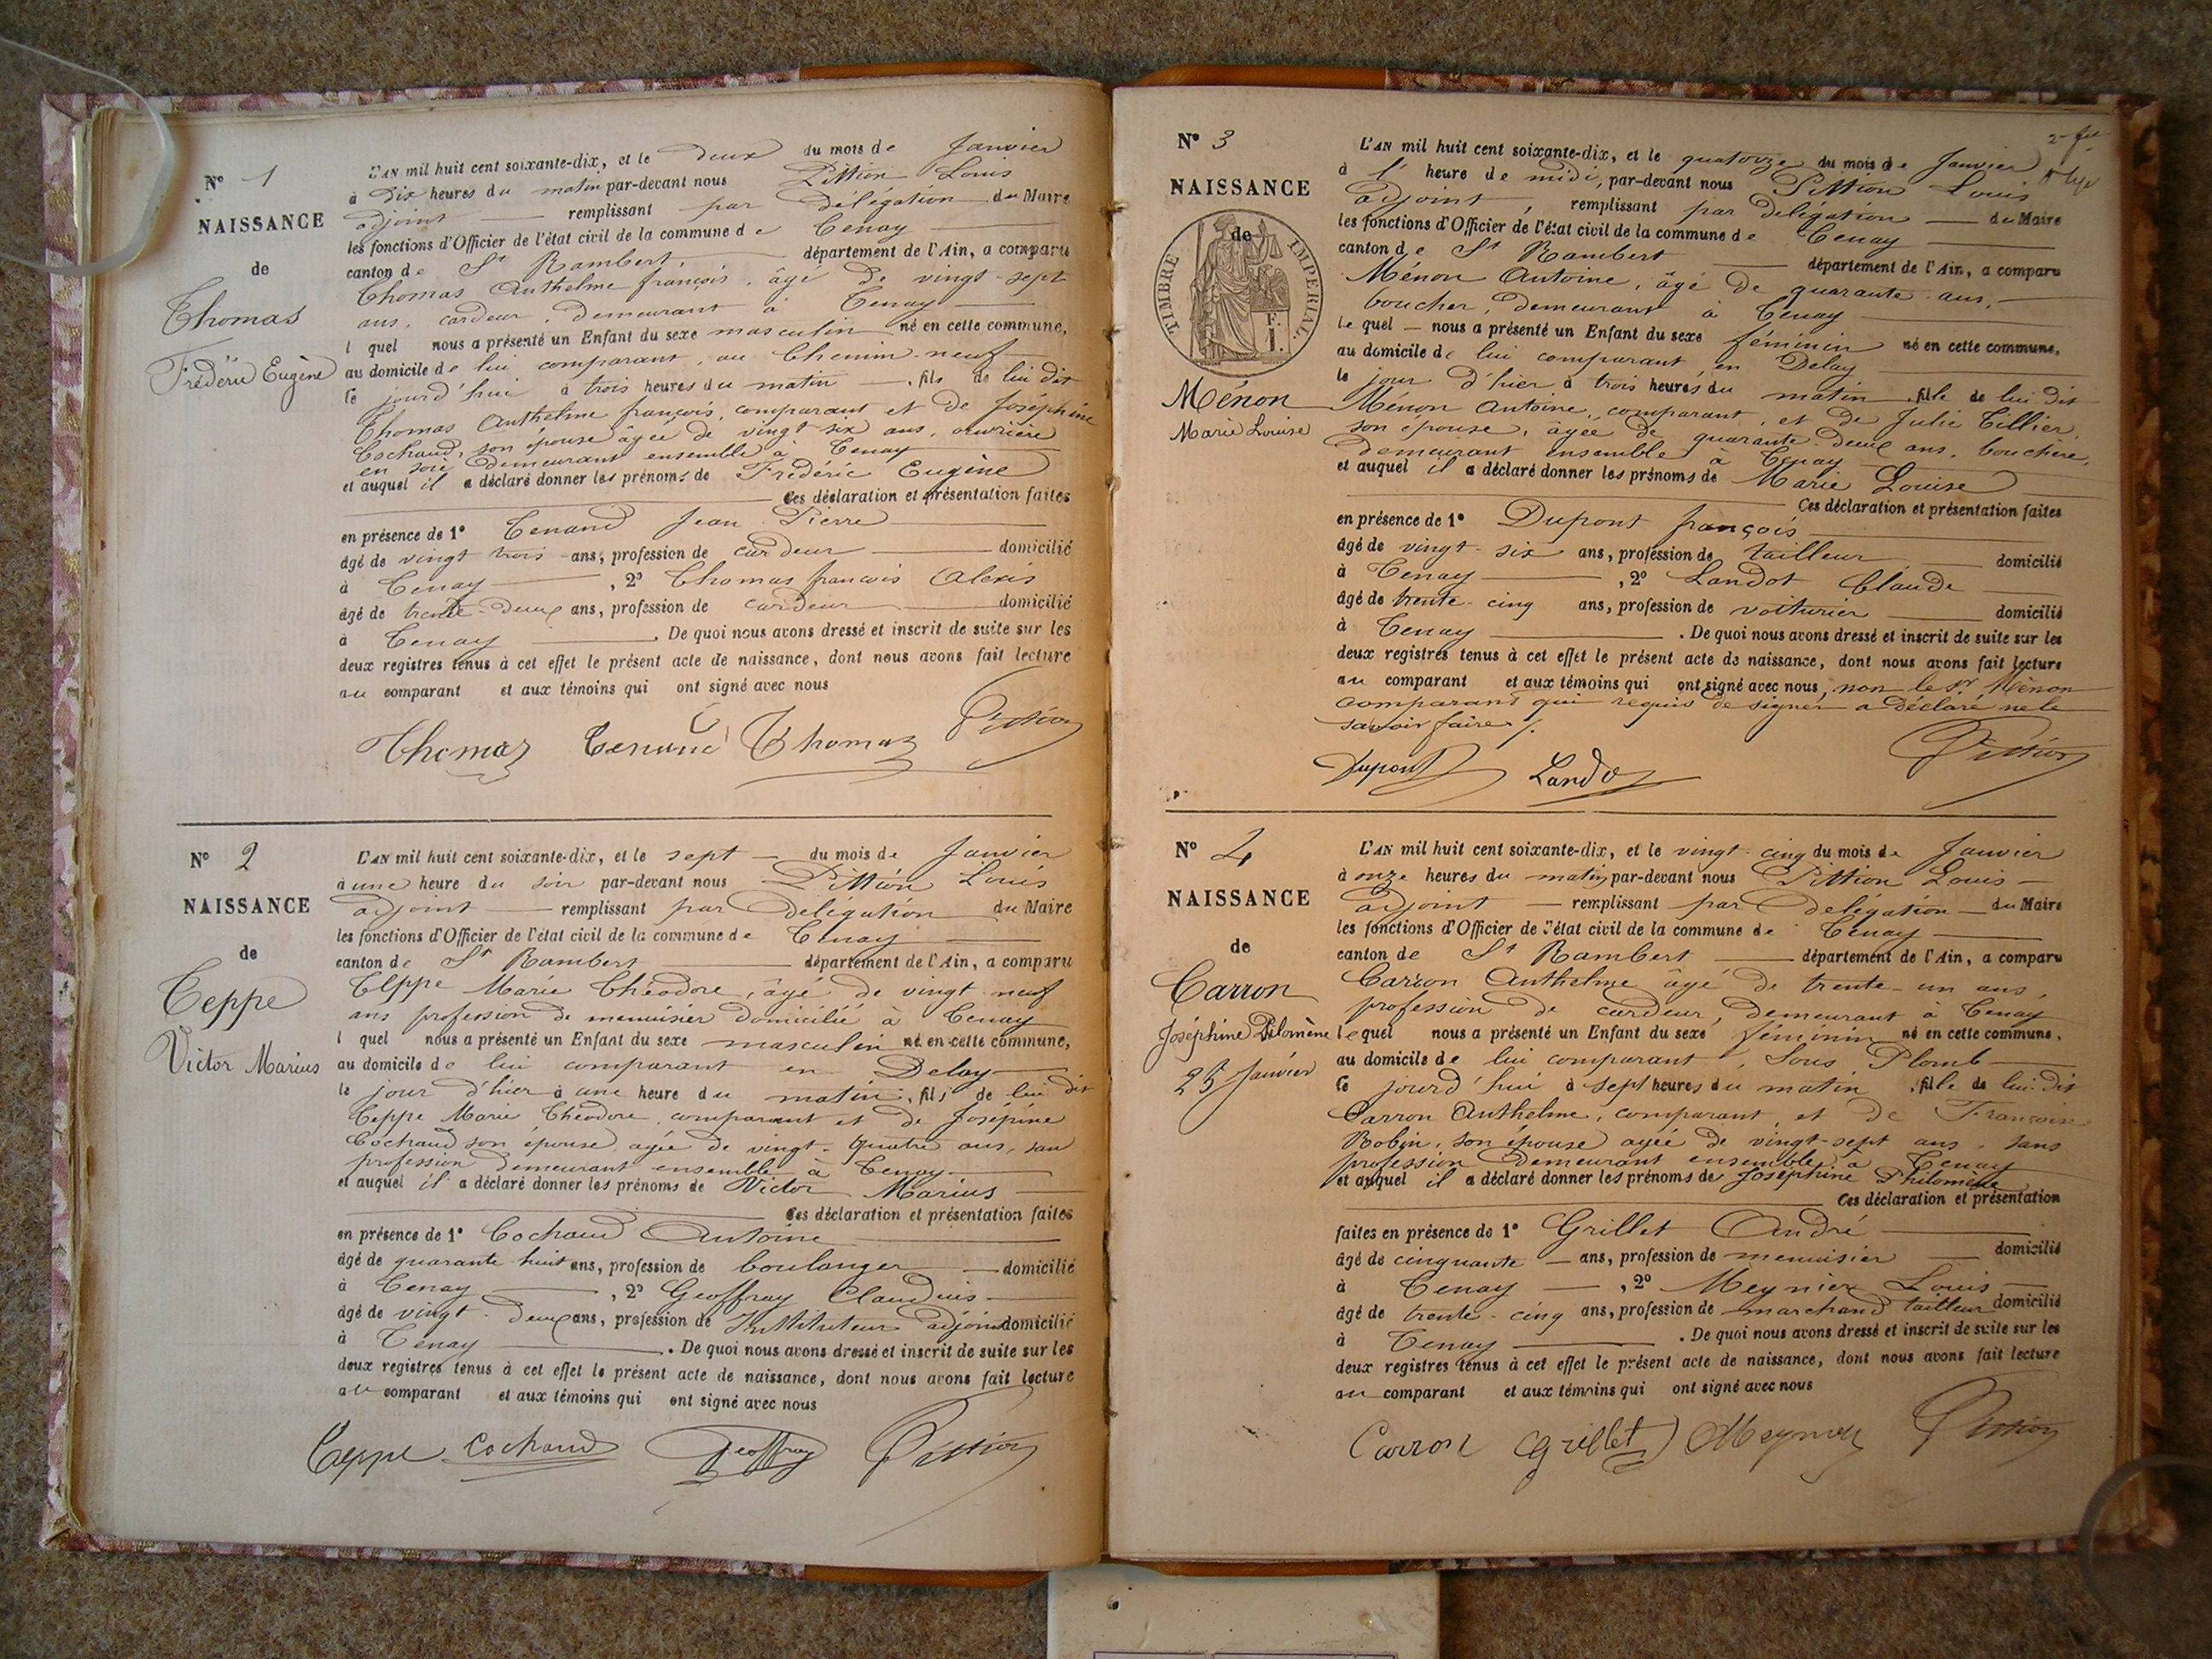 N° 1
NAISSANCE
de
Thomas
Frédéric Eugène
L'AN mil huit cent soixante-dix, et le deux du mois de Janvier
à dix heures du matin par-devant nous Pittion Louis
adjoint remplissant par délégation du Maire
les fonctions d'Officier de l'état civil de la commune de Tenay
canton de St Rambert, département de l'Ain, a comparu
Thomas Anthelme françois, âgé de vingt-sept
ans, cardeur, demeurant à Tenay
l quel nous a présenté un Enfant du sexe masculin né en cette commune,
au domicile de lui comparant, au Chemin-neuf
le jourd'hui à trois heures du matin, fils de lui dit
Thomas Anthelme françois, comparant et de Joséphine
Cochaud, son épouse âgée de vingt-six ans, ouvrière
en soie demeurant ensemble à Tenay
et auquel il a déclaré donner les prénoms de Frédéric Eugène
Ces déclaration et présentation faites
en présence de 1° Tenand Jean Pierre
âgé de vingt trois ans, profession de cardeur domicilié
à Tenay, 2° Thomas françois Alexis
âgé de trente-deux ans, profession de cardeur domicilié
à Tenay. De quoi nous avons dressé et inscrit de suite sur les
deux registres tenus à cet effet le présent acte de naissance, dont nous avons fait lecture
au comparant et aux témoins qui ont signé avec nous
Thomas Tenand Thomas Pittion
N° 2
NAISSANCE
de
Teppe
Victor Marius
L'AN mil huit cent soixante-dix, et le sept du mois de Janvier
à une heure du soir par-devant nous Pittion Louis
adjoint remplissant par délégation du Maire
les fonctions d'Officier de l'état civil de la commune de Tenay
canton de St Rambert département de l'Ain, a comparu
Teppe Marie Théodore, âgé de vingt-neuf
ans profession de menuisier domicilié à Tenay
l quel nous a présenté un Enfant du sexe masculin né en cette commune,
au domicile de lui comparant en Delay
le jour d'hier à une heure du matin, fils de lui dit
Teppe Marie Théodore, comparant et de Josépine
Cochaud son épouse, agée de vingt-quatre ans, sans
profession demeurant ensemble à Tenay
et auquel il a déclaré donner les prénoms de Victor Marius
Ces déclaration et présentation faites
en présence de 1° Cochaud Antoine
âgé de quarante huit ans, profession de boulanger domicilié
à Tenay, 2° Geoffray Claudius
âgé de vingt-deux ans, profession de Instituteur adjoint domicilié
à Tenay. De quoi nous avons dressé et inscrit de suite sur les
deux registres tenus à cet effet le présent acte de naissance, dont nous avons fait lecture
au comparant et aux témoins qui ont signé avec nous
Teppe Cochaud Geoffray Pittion
N° 3
NAISSANCE
de
TIMBRE IMPERIAL
F.
1.
Ménon
Marie Louise
L'AN mil huit cent soixante-dix, et le quatorze du mois de Janvier
à l' heure de midi, par-devant nous Pittion Louis
adjoint, remplissant par délégation du Maire
les fonctions d'Officier de l'état civil de la commune de Tenay
canton de St Rambert département de l'Ain, a comparu
Ménon Antoine, âgé de quarante-ans,
boucher, demeurant à Tenay
le quel nous a présenté un Enfant du sexe féminin né en cette commune,
au domicile de lui comparant, en Delay
le jour d'hier à trois heures du matin, fille de lui dit
Ménon Antoine, comparant, et de Julie Tillier
son épouse, âgée de quarante-deux ans, bouchère,
demeurant ensemble à Tenay
et auquel il a déclaré donner les prénoms de Marie Louise
Ces déclaration et présentation faites
en présence de 1° Dupont françois
âgé de vingt-six ans, profession de tailleur domicilié
à Tenay, 2° Landot Claude
âgé de trente-cinq ans, profession de voiturier domicilié
à Tenay. De quoi nous avons dressé et inscrit de suite sur les
deux registres tenus à cet effet le présent acte de naissance, dont nous avons fait lecture
au comparant et aux témoins qui ont signé avec nous, non le Sr Ménon
comparant qui requis de signer a déclaré ne le
savoir faire /.
Dupont Landot Pittion
N° 4
NAISSANCE
de
Carron
Joséphine Philomène
25 Janvier
L'AN mil huit cent soixante-dix, et le vingt-cinq du mois de Janvier
à onze heures du matin par-devant nous Pittion Louis
adjoint remplissant par délégation du Maire
les fonctions d'Officier de l'état civil de la commune de Tenay
canton de St Rambert département de l'Ain, a comparu
Carron Anthelme âgé de trente-un ans,
profession de cardeur, demeurant à Tenay
lequel nous a présenté un Enfant du sexe féminin né en cette commune,
au domicile de lui comparant, Sous Plomb
le jourd'hui à sept heures du matin, fille de lui dit
Carron Anthelme, comparant, et de Françoise
Robin, son épouse agée de vingt-sept ans, sans
profession demeurant ensemble à Tenay
et auquel il a déclaré donner les prénoms de Joséphine Philomène
Ces déclaration et présentation
faites en présence de 1° Grillet André
âgé de cinquante ans, profession de menuisier domicilié
à Tenay, 2° Meynier Louis
âgé de trente-cinq ans, profession de marchand tailleur domicilié
à Tenay. De quoi nous avons dressé et inscrit de suite sur les
deux registres tenus à cet effet le présent acte de naissance, dont nous avons fait lecture
au comparant et aux témoins qui ont signé avec nous
Carron Grillet Meynier Pittion